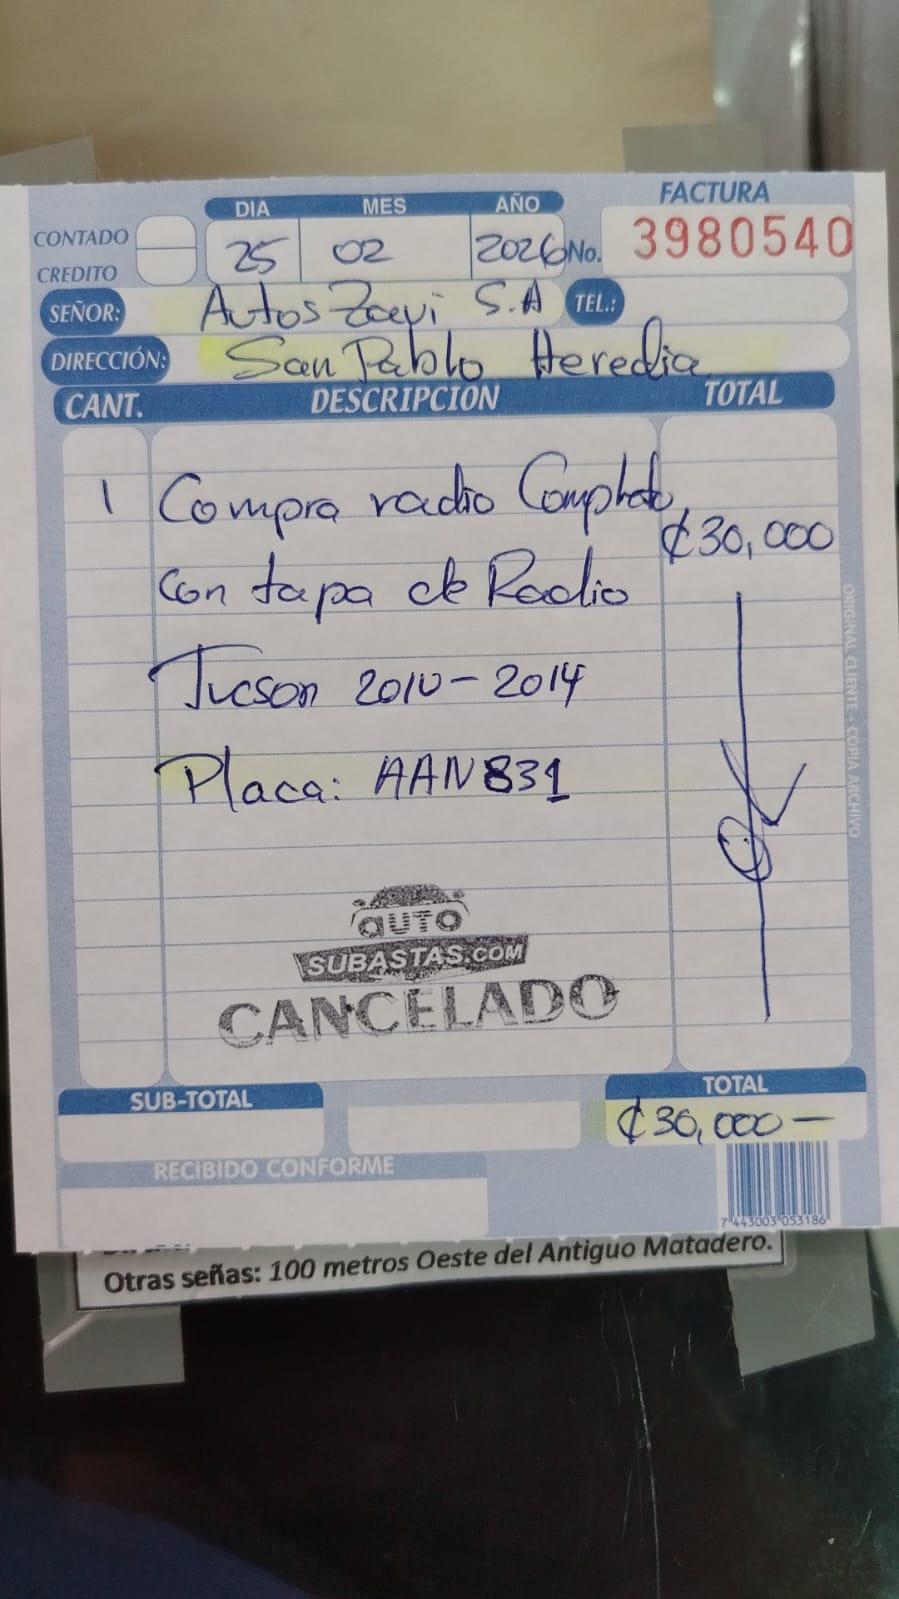 DIA MES AÑO FACTURA
CONTADO
CREDITO
25 02 2026 No. 3980540
SEÑOR: Autos Zavi S.A TEL.:
DIRECCIÓN: San Pablo Heredia
CANT. DESCRIPCION TOTAL
1 Compra radio Completo ₡30,000
con tapa de Radio
Tucson 2010-2014
Placa: AAN831
OK
AUTO
SUBASTAS.COM
CANCELADO
ORIGINAL CLIENTE - COPIA ARCHIVO
SUB-TOTAL TOTAL
₡30,000-
RECIBIDO CONFORME
7 443003 053186
Otras señas: 100 metros Oeste del Antiguo Matadero.